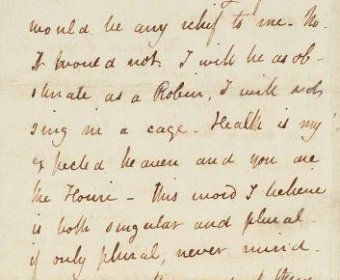 would be any relief to me. No.
It would not. I will be as ob-
stinate as a Robin, I will not
sing in a cage. Health is my
expected heaven and you are
the Houri - this word I believe
is both singular and plural -
if only plural, never mind -